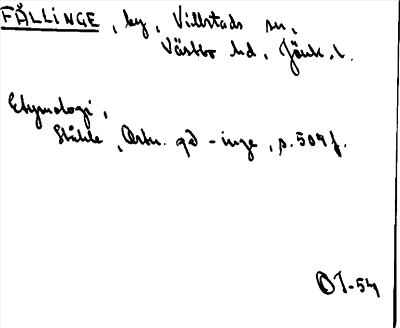 FÅLLINGE, by, Villstads sn,
Västbo hd, Jönk. l.
Etymologi,
Ståhle, Ortn. på -inge, s. 504 f.
OT-54